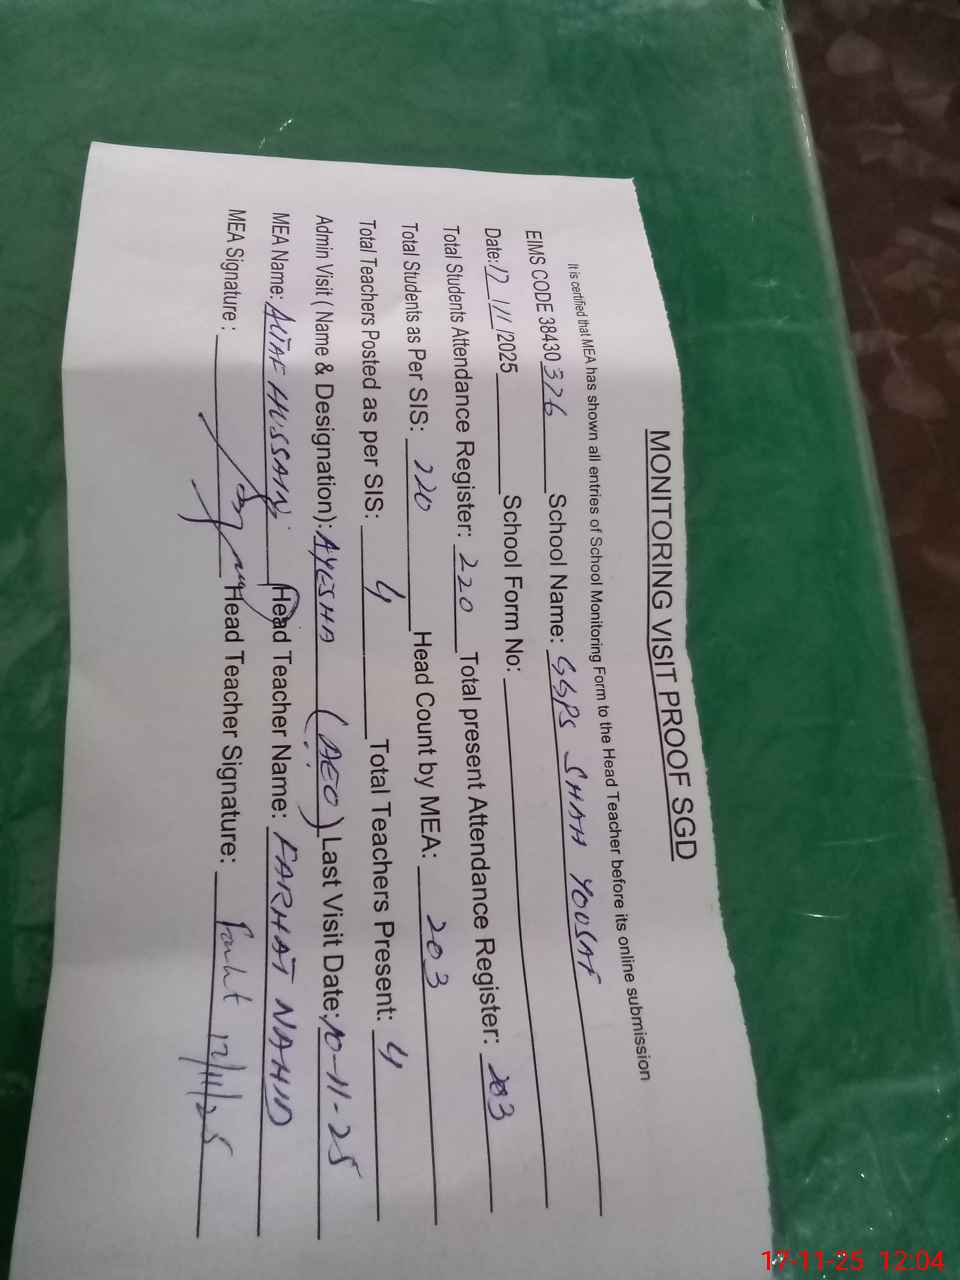 MONITORING VISIT PROOF SGD
It is certified that MEA has shown all entries of School Monitoring Form to the Head Teacher before its online submission
EIMS CODE 38430 326 School Name: GGPS SHAH YOUSAF
Date: 12/11/2025 School Form No:
Total Students Attendance Register: 220 Total present Attendance Register: 203
Total Students as Per SIS: 220 Head Count by MEA: 203
Total Teachers Posted as per SIS: 4 Total Teachers Present: 4
Admin Visit ( Name & Designation): AYESHA (AEO) Last Visit Date: 10-11-25
MEA Name: ALTAF HUSSAIN Head Teacher Name: FARHAT NAHID
MEA Signature : Head Teacher Signature: Farht 12/11/25
17-11-25 12:04